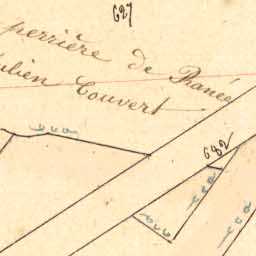 627
perrière de Ranée
ulien Couvert
682